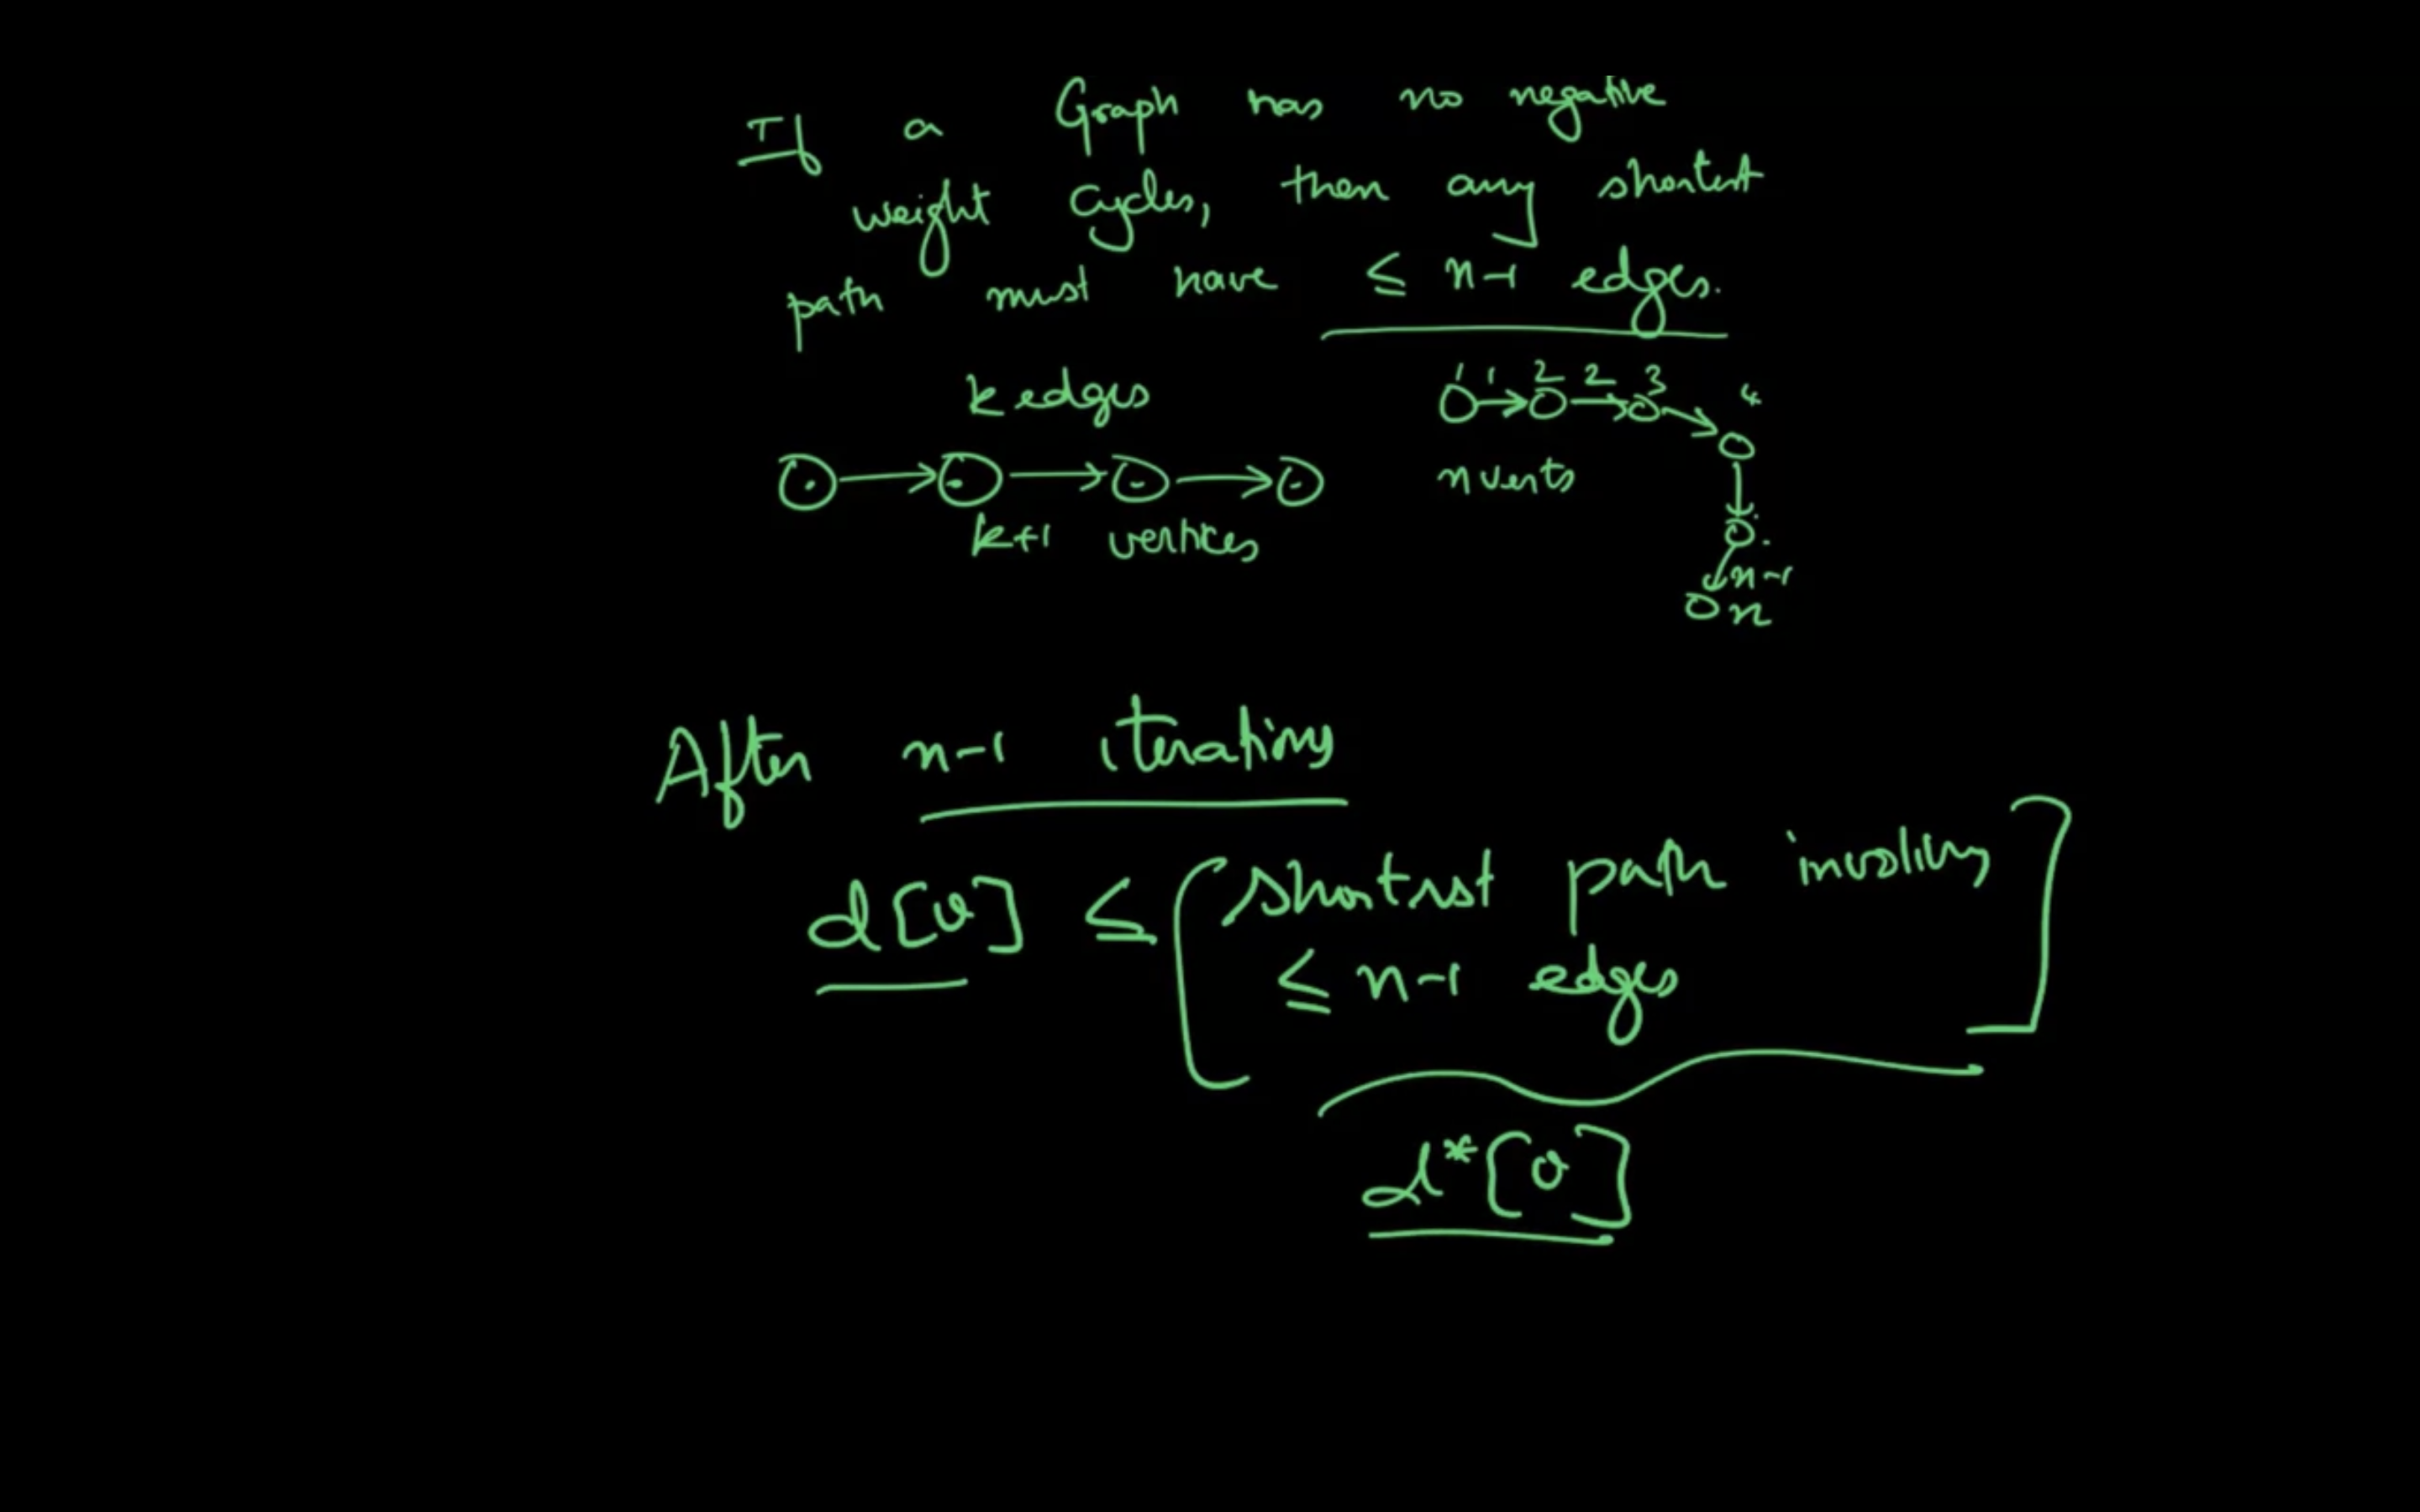 If a Graph has no negative
weight cycles, then any shortest
path must have ≤ n-1 edges.
k edges
k+1 vertices
1 1 2 2 3 4
n verts
n-1
n
After n-1 iterations
d[v] ≤ [shortest path involving
≤ n-1 edges]
d*[v]